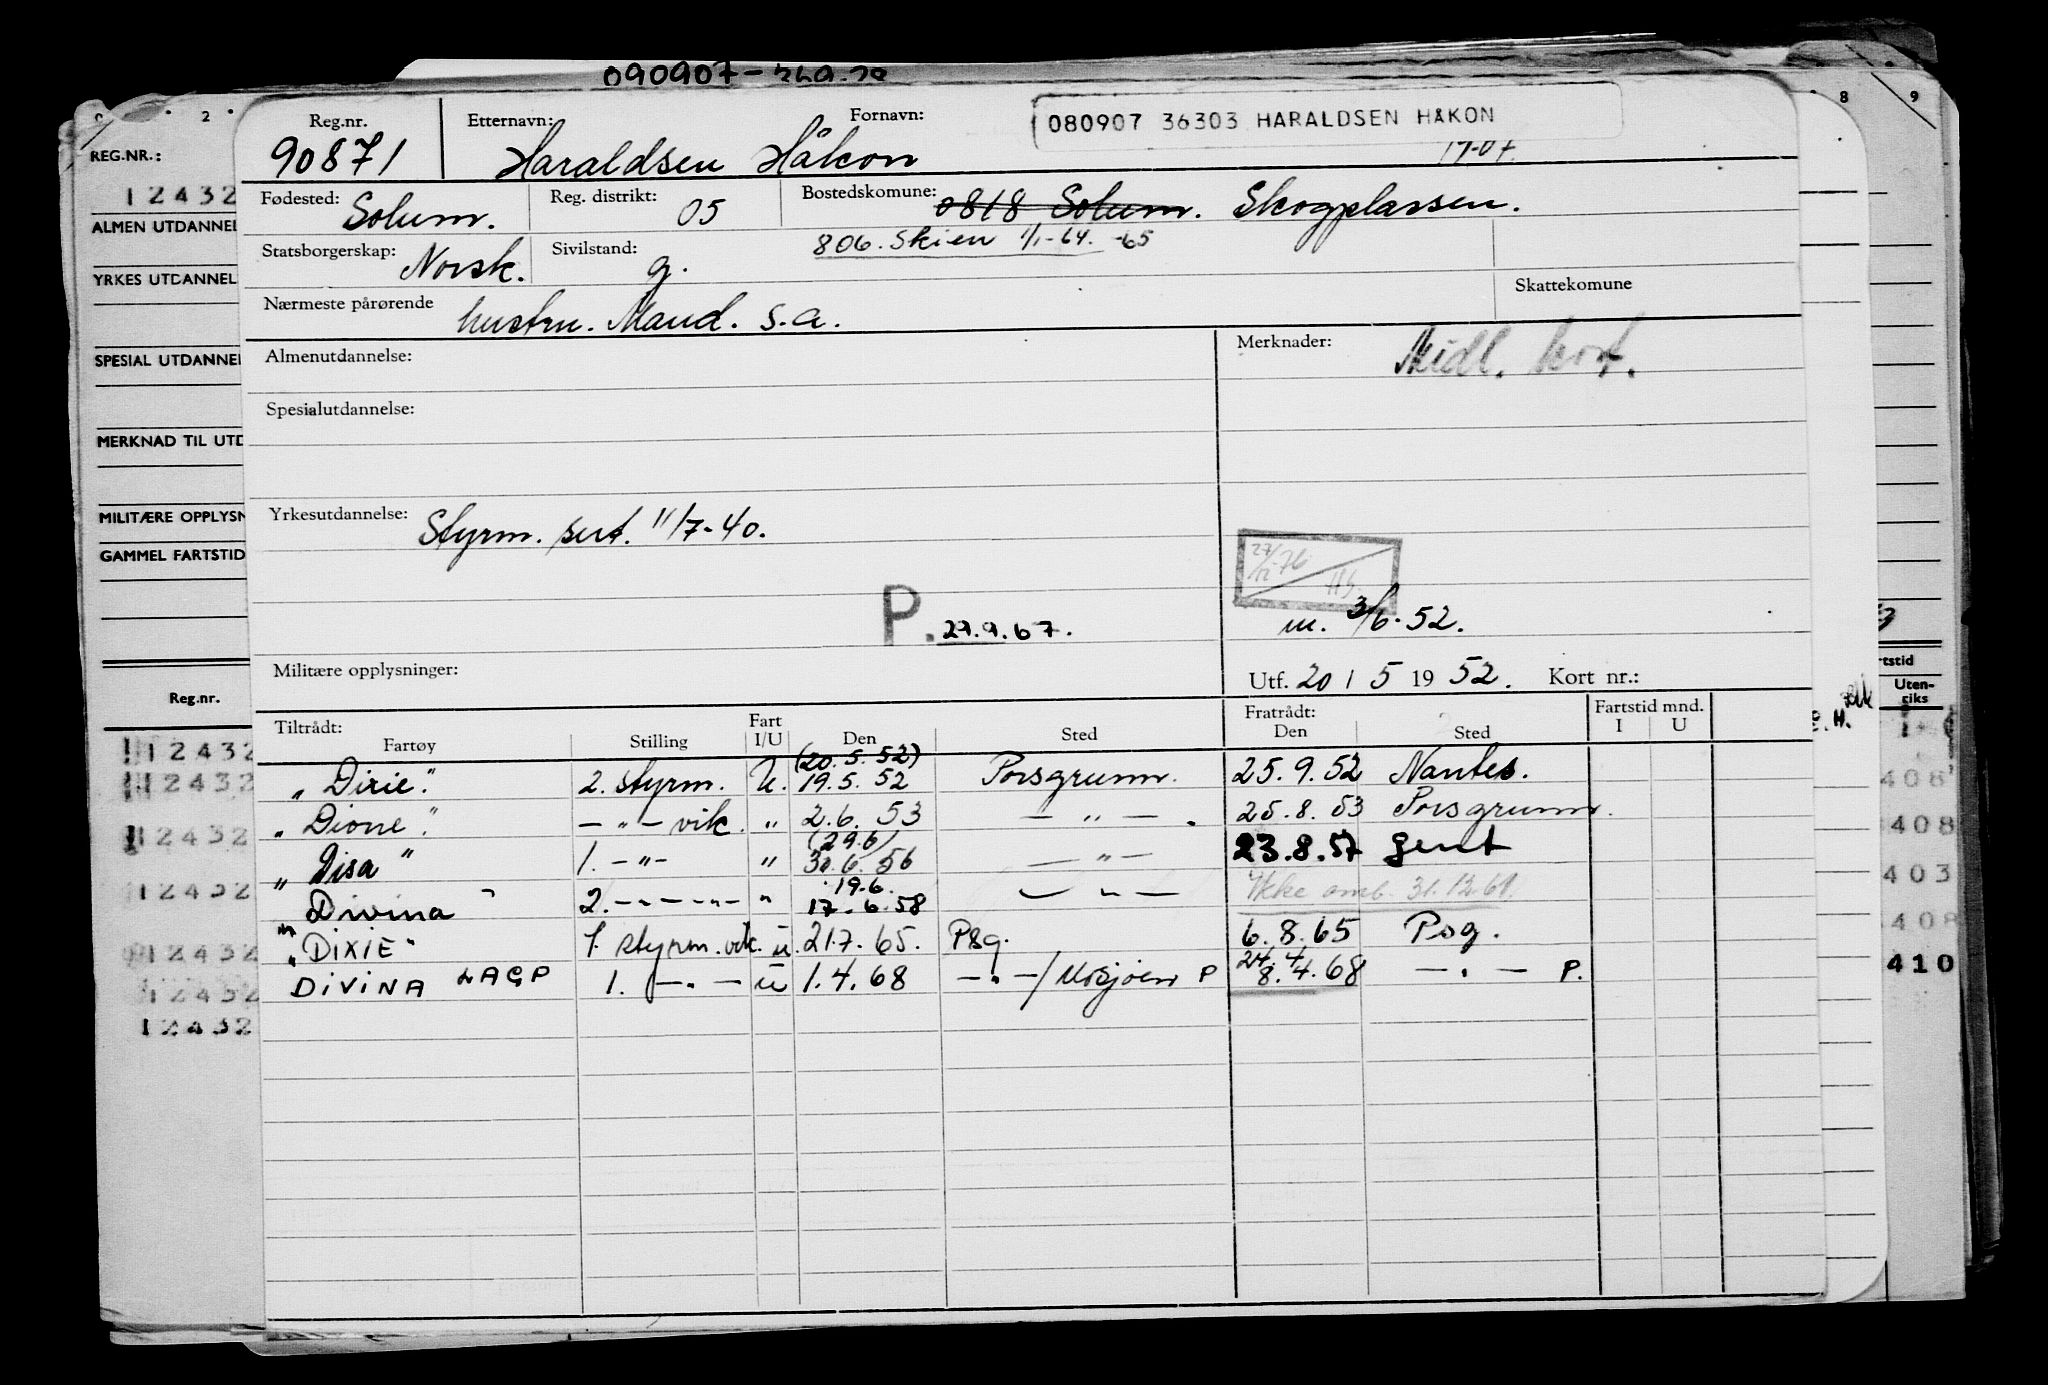 090907-
0 2 8 9
Reg.nr. Etternavn: Fornavn: 080907 36303 HARALDSEN HÅKON
90871 Haraldsen Håkon
Fødested: Solum. Reg. distrikt: 05 Bostedskomune: 0818 Solum. Skogplassen.
806. Skien 1/1-64. -65
Statsborgerskap: Norsk. Sivilstand: g.
Nærmeste pårørende hustru. Maud. s.a. Skattekomune
Almenutdannelse: Merknader: Midl. kort.
Spesialutdannelse:
Yrkesutdannelse: Styrm. sert. 11/7-40.
27/12-76 HS
P. 29.9.67. m. 3/6-52.
Militære opplysninger: Utf. 20 / 5 19 52. Kort nr.:
Tiltrådt: Fart Fratrådt: Fartstid mnd.
Fartøy Stilling I/U Den Sted Den Sted I U
(20.5.52)
"Dixie". 2. styrm. U. 19.5.52 Porsgrunn. 25.9.52 Nantes.
"Dione". — " — vik. " 2.6.53 — " — . 25.8.53 Porsgrunn.
(29.6)
"Disa" 1. — " — " 30.6.56 — " — 23.8.57 Gent
19.6.
Divina" 2. — " — " — " 17.6.58 — " — Ikke omb. 31.12.61.
"DIXIE" 1. styrm. vik. u. 21.7.65. Psg. 6.8.65 Psg.
24.4
DIVINA LAGP 1. — " — u 1.4.68 — " —/Mosjøen P 8.4.68 — " — P.
REG.NR.:
12432
ALMEN UTDANNEL
YRKES UTDANNEL
SPESIAL UTDANNEL
MERKNAD TIL UTD
MILITÆRE OPPLYSN
GAMMEL FARTSTID
Reg.nr.
12432
12432
12432
12432
12432
12432
12432
rtstid
Uten-
riks
408
408
403
408
410